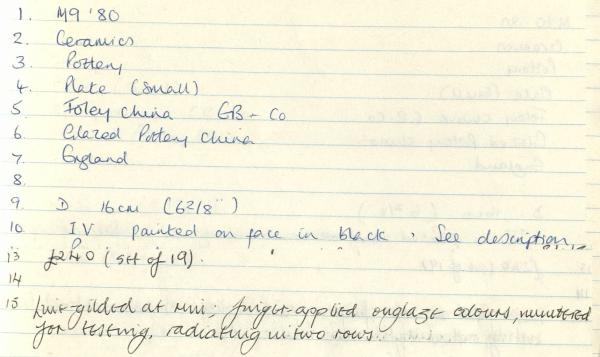 1. M9 '80
2. Ceramics
3. Pottery
4. Plate (Small)
5 Foley China GB + Co
6. Glazed Pottery China
7. England
8.
9. D 16cm (6 2/8")
10 IV painted on face in black. See description.
13 £240 (set of 19).
14
15 Line-gilded at rim; finger-applied onglaze colours, numbered
for testing, radiating in two rows.